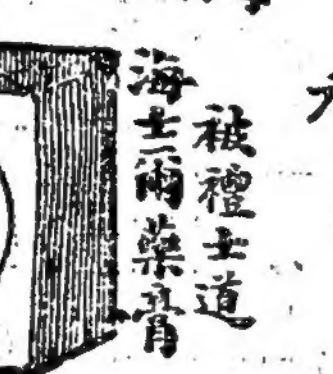 被禮士道
海士爾藥膏